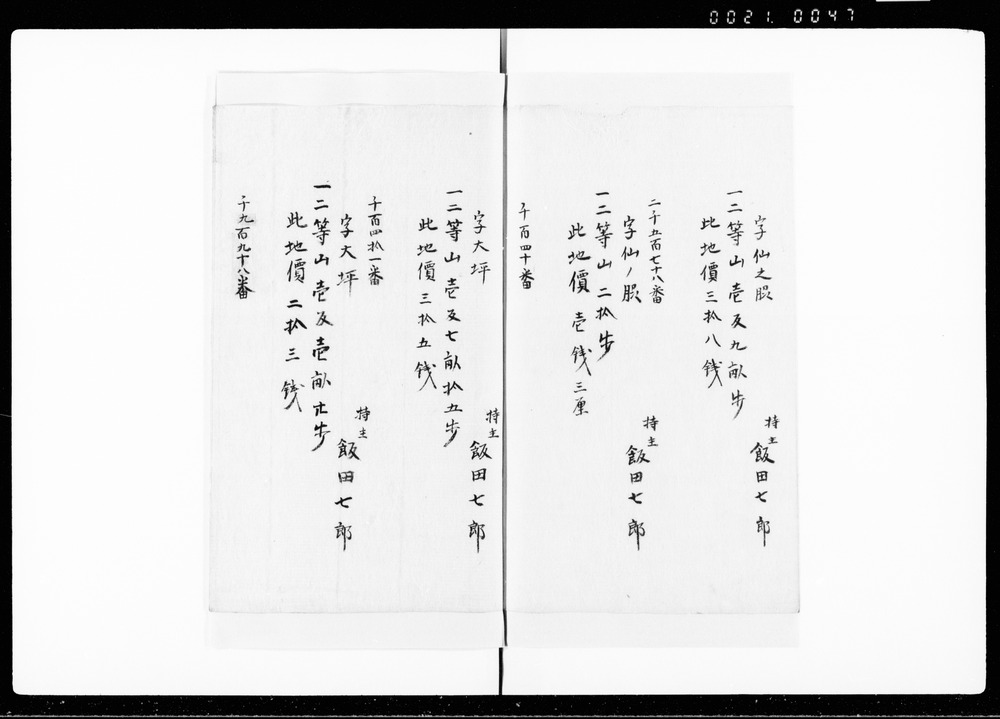 0021.0047
字仙之腰
一二等山壱反九畝歩
持主飯田七郎
此地價三拾八銭
二千五百七十八番
字仙ノ腰
一二等山二拾歩
持主飯田七郎
此地價壱銭三厘
千百四十番
字大坪
一二等山壱反七畝拾五歩
持主飯田七郎
此地價三拾五銭
千百四拾一番
字大坪
一二等山壱反壱畝廿歩
持主飯田七郎
此地價二拾三銭
千九百九十八番